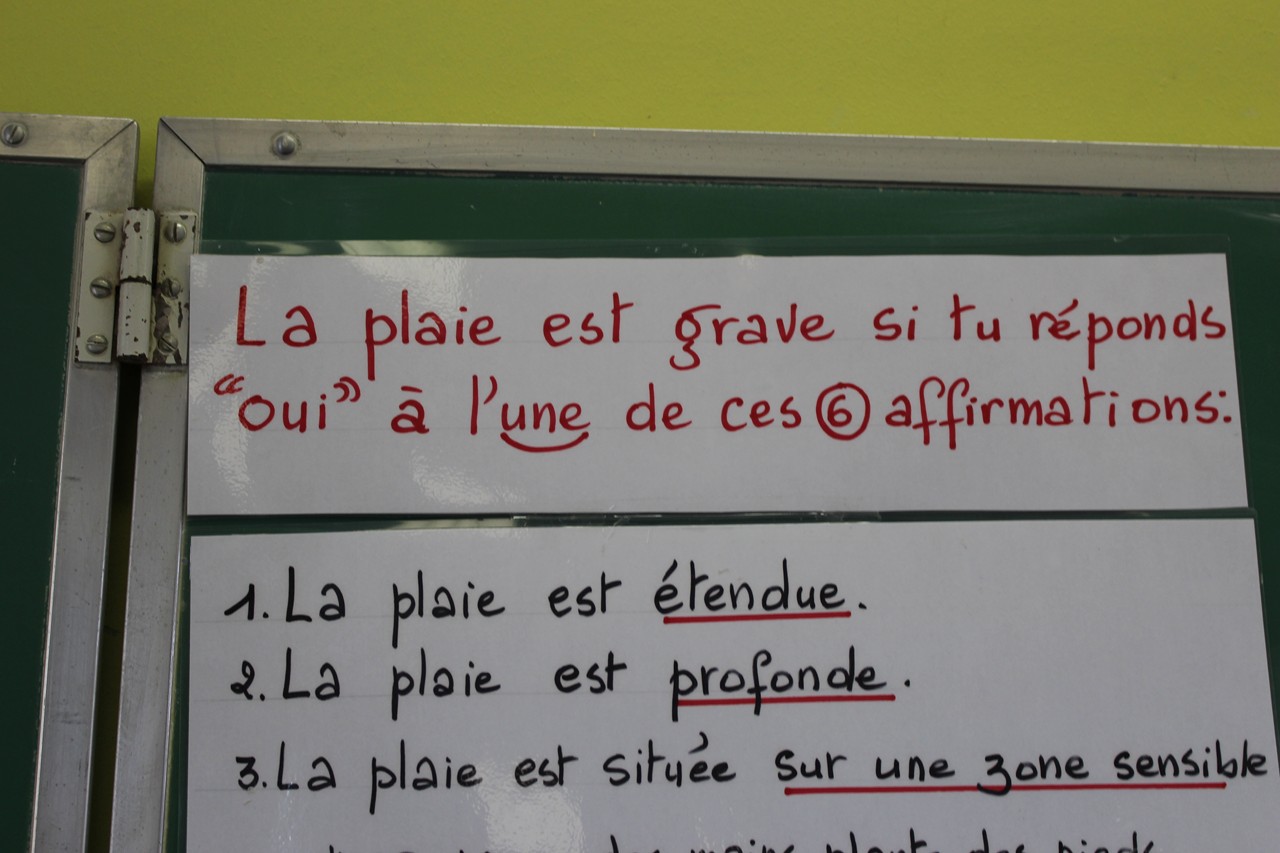 La plaie est grave si tu réponds
“oui” à l'une de ces 6 affirmations:
1. La plaie est étendue.
2. La plaie est profonde.
3. La plaie est située sur une zone sensible
des mains, plante des pieds